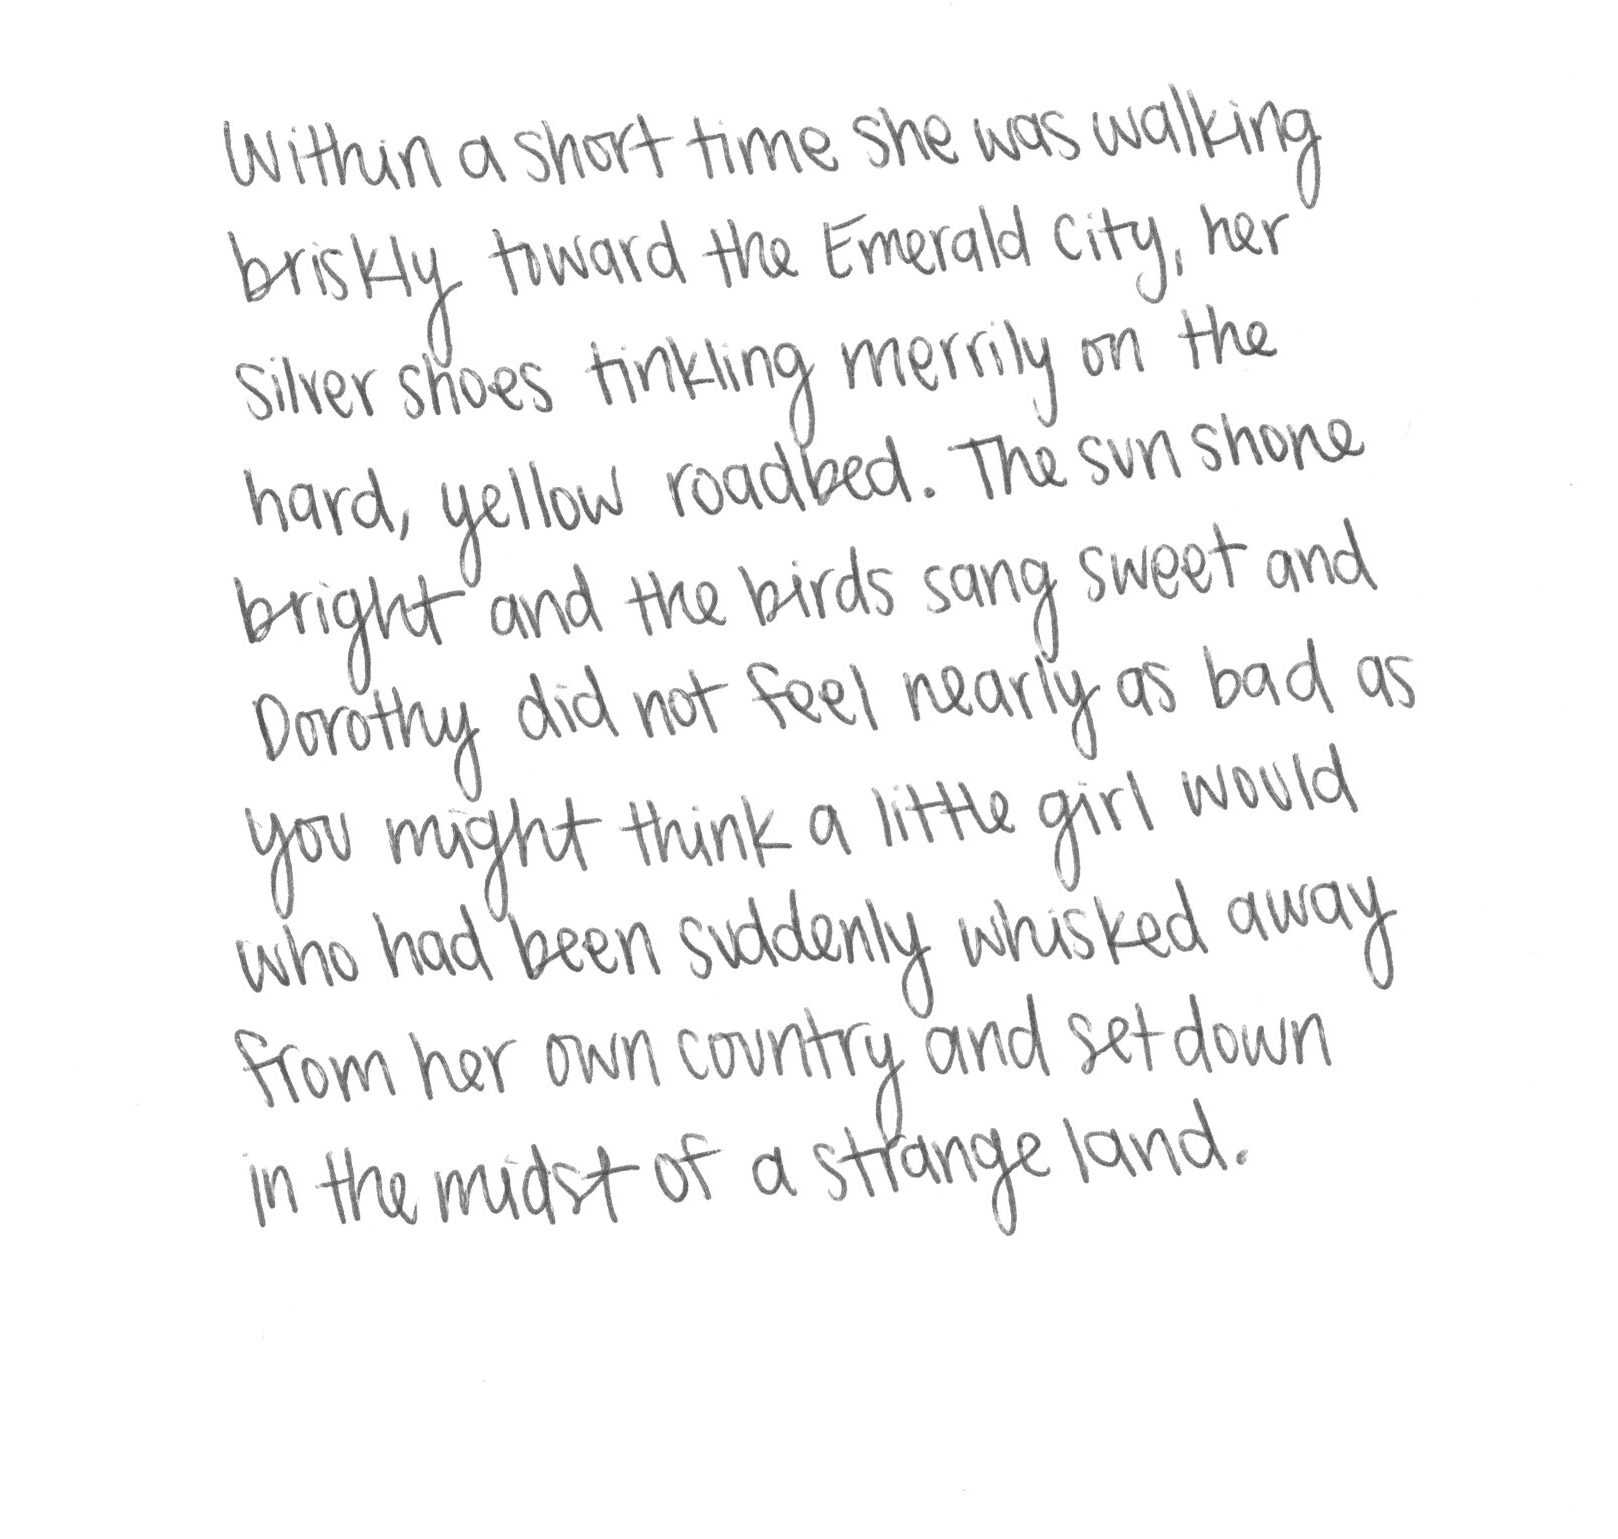 Within a short time she was walking
briskly toward the Emerald City, her
Silver shoes tinkling merrily on the
hard, yellow roadbed. The sun shone
bright and the birds sang sweet and
Dorothy did not feel nearly as bad as
you might think a little girl would
who had been suddenly whisked away
from her own country and set down
in the midst of a strange land.